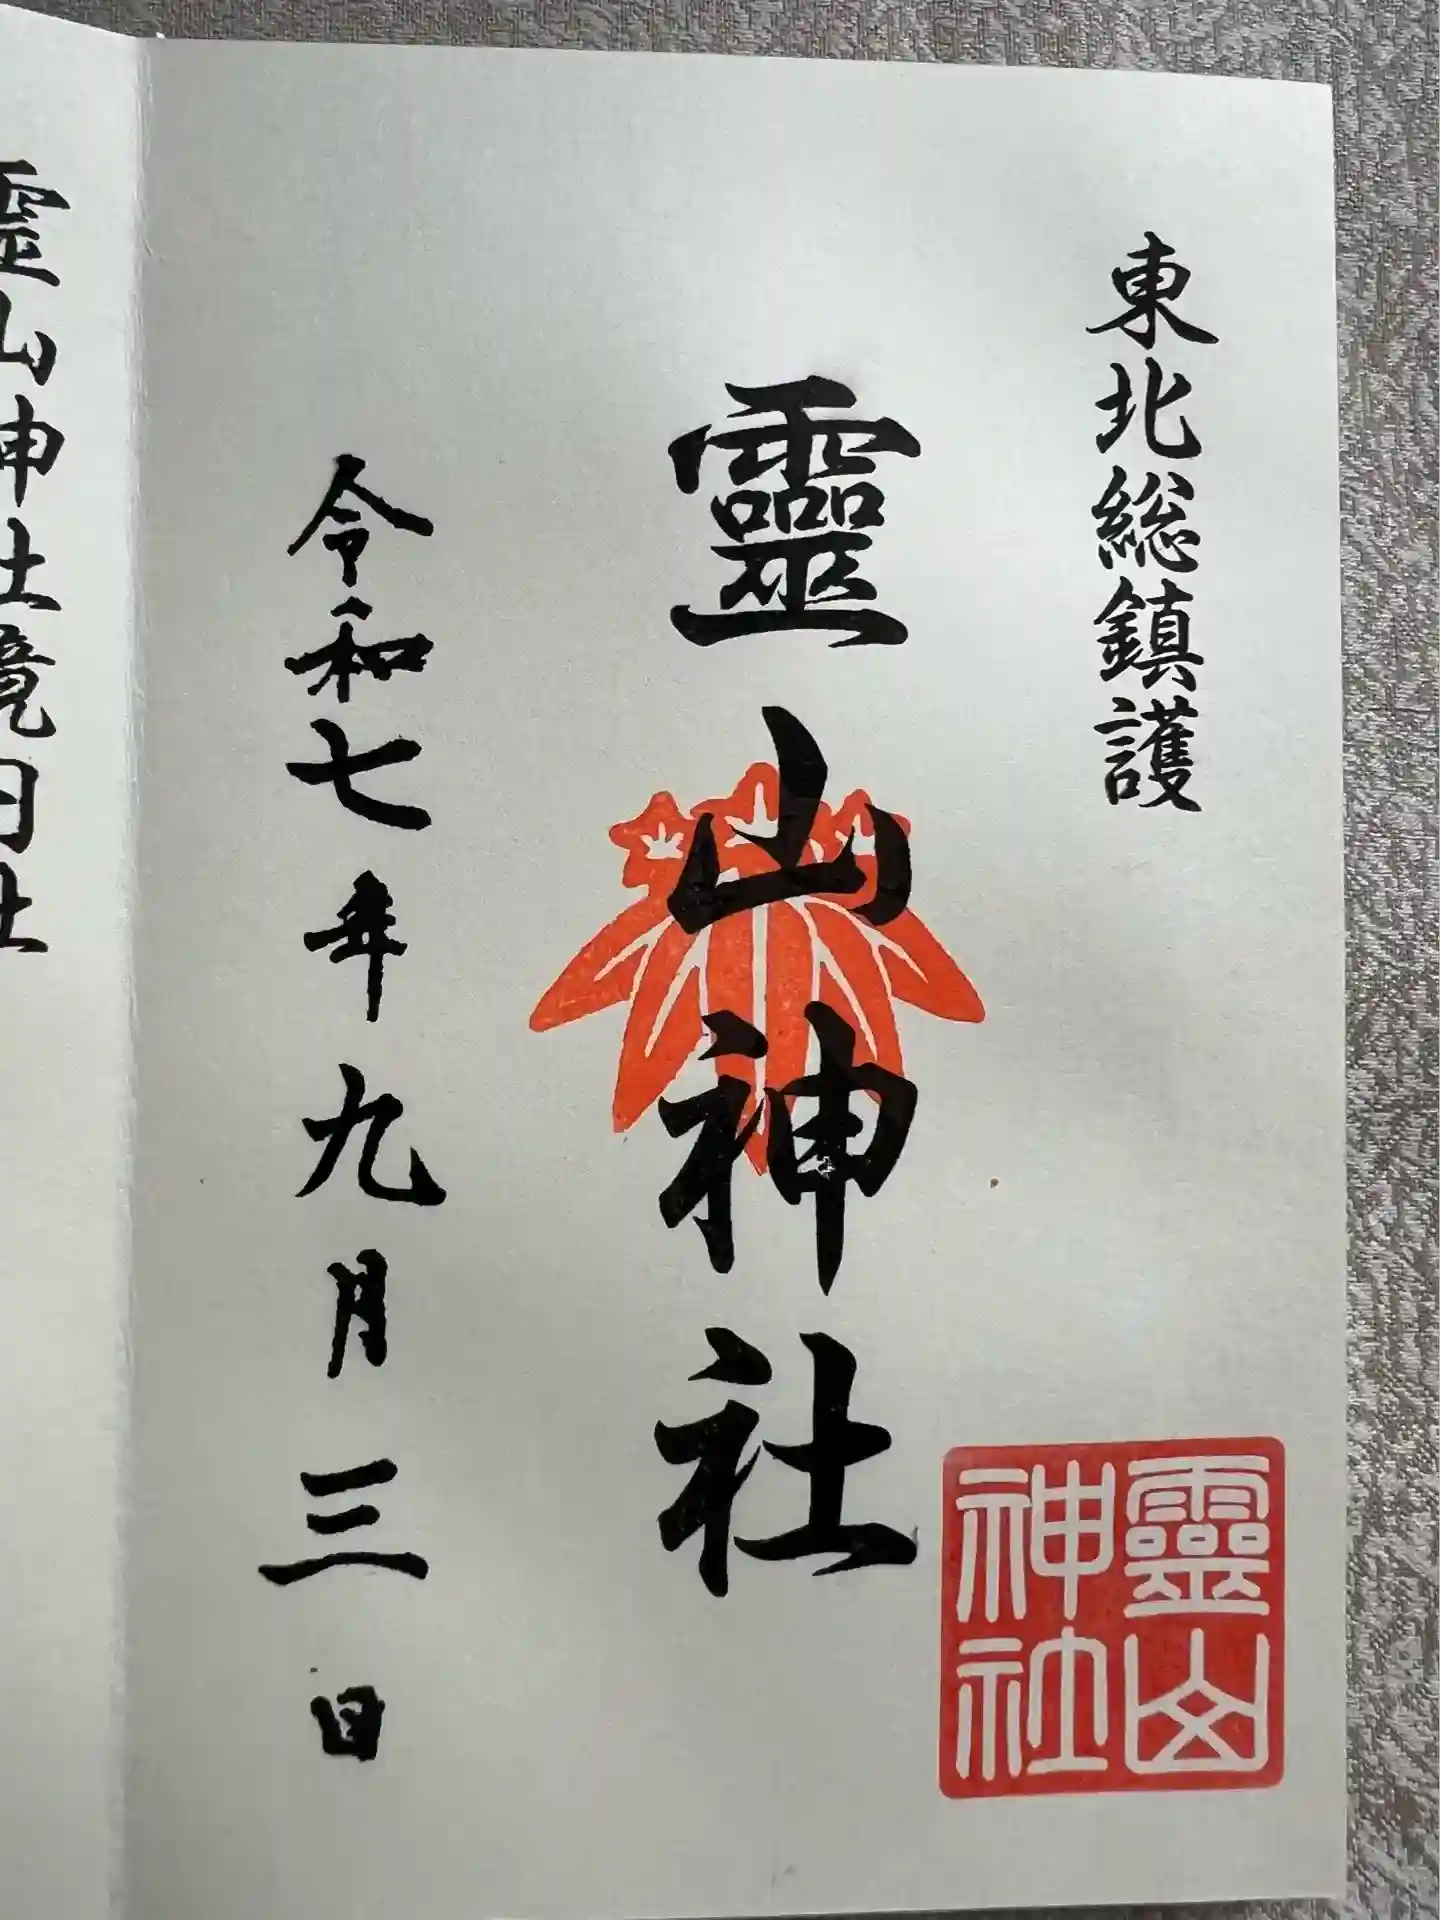 東北総鎮護
靈山神社
令和七年九月三日
靈山
神社
霊山神社境内社